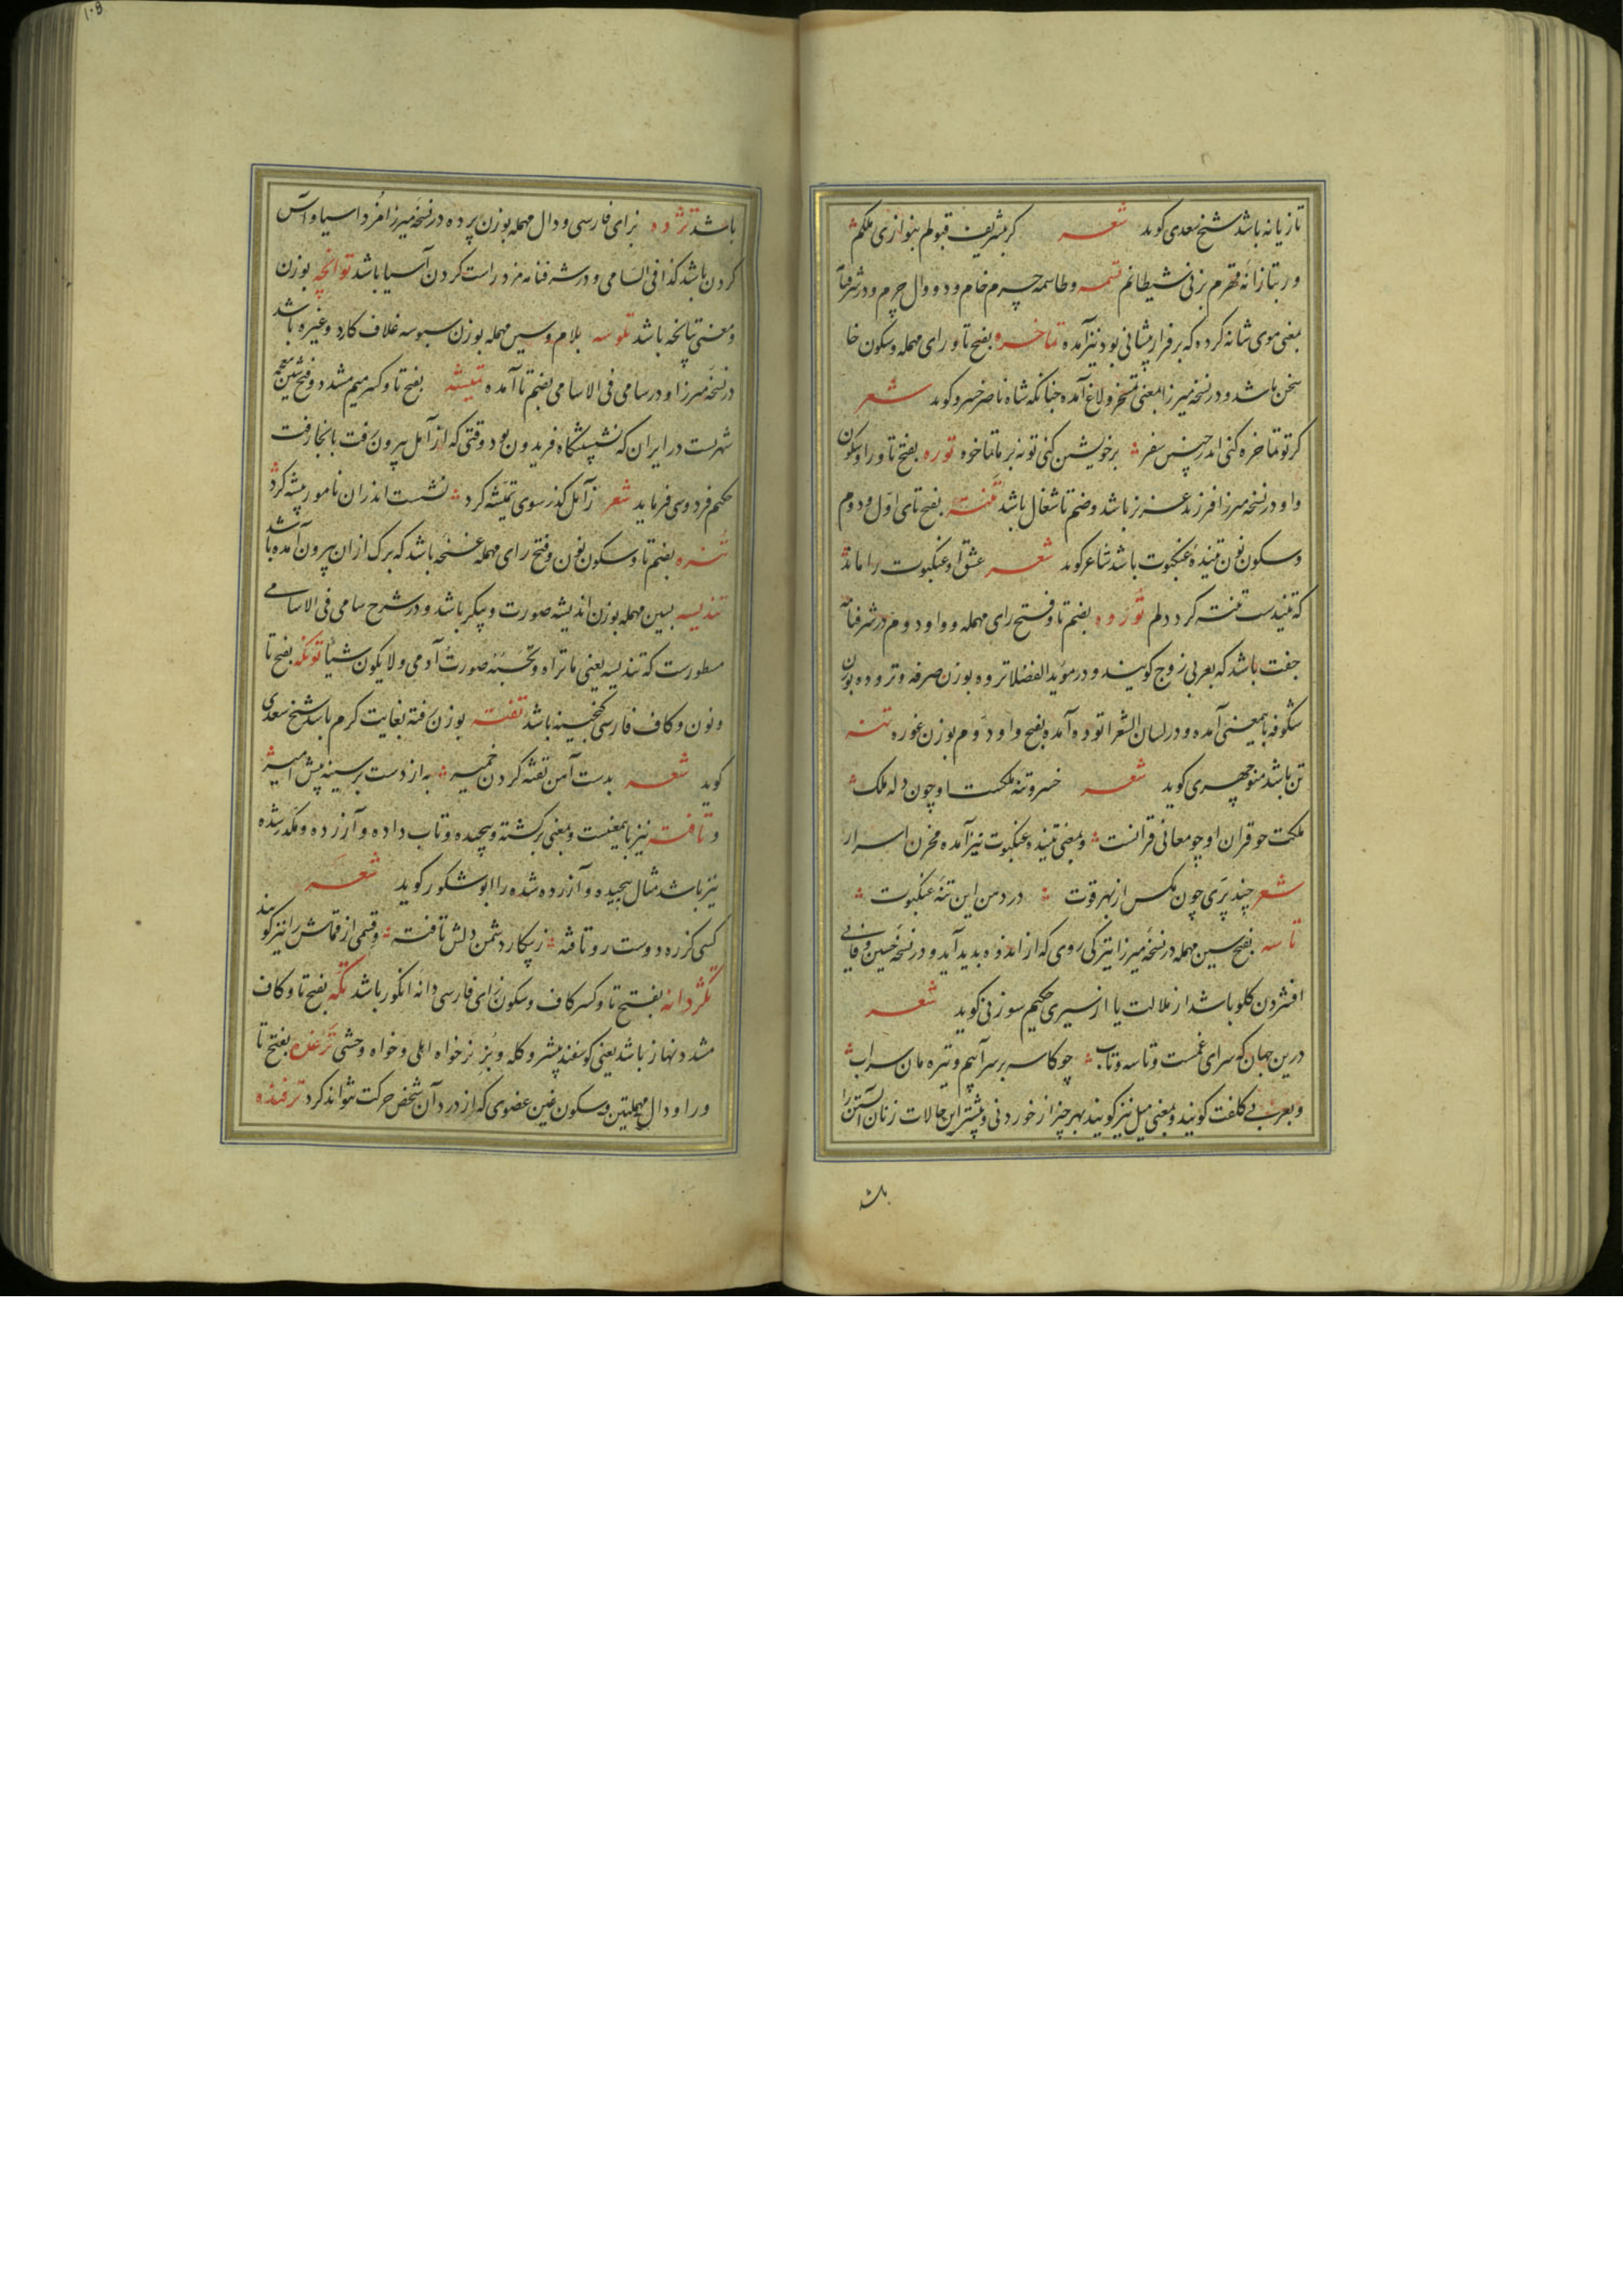 تازیانه باشد شیخ سعدی کوید شعر کر بشریف قبولم بنوازی ملکم
ور بتازانهٔ قهرم بزنی شیطانم تسمه و طاسمه چرم خام و دووال چرم و در شرفنامه
بمعنی موی شانه کرده که بر فراز پیشانی بود نیز آمده تماخره بفتح تا و رای مهمله و سکون خا
سخن باشد و در نسخه میرزا بمعنی تمسخر و لاغ آمده چنانکه شاه ناصر خسرو کوید شعر
کر تو تماخره کنی اندر چنین سفر بر خویشتن کنی تو نه بر ما تماخره توره بفتح تا و را و سکون
واو در نسخه میرزا فرزند عزیز باشد و بضم تا شغال باشد تنته بفتح تای اول و دوم
و سکون نون تنیدهٔ عنکبوت باشد شاعر کوید شعر عشق او عنکبوت را ماند
که تنیدست تنته کرد دلم توروه بضم تا و فتح رای مهمله و واو دوم در شرفنامه
جفت باشد که بعربی زوج کویند و در مؤید الفضلا تروه بوزن صرفه و تروده بوزن
شکوفه باینمعنی آمده و در لسان الشعرا توده آمده بفتح واو دوم بوزن غوره تنه
تن باشد منوچهری کوید شعر خسرو تنه ملکست او چون دله ملک
ملکت چو قران او چو معانی قرانست و بمعنی تنیده عنکبوت نیز آمده مخزن اسرار
شعر چند پری چون مکس از بهر قوت در دهن این تنهٔ عنکبوت
تاسه بفتح سین مهمله در نسخه میرزا تیرکی روی که از اندوه پدید آید و در نسخه حسین وفایی
افشردن کلو باشد از ملالت یا از سیری حکیم سوزنی کوید شعر
درین جهان که سرای غمست و تاسه و تاب چو کاسه بر سر آبیم و تیره مان سراب
و بعربی کلفت کویند و بمعنی میل نیز کویند بهر چیز از خوردنی و بیشتر این حالات زنان آبستن را
باشد
باشد تژده بزای فارسی و دال مهمله بوزن پرده در نسخه میرزا مزد اسیا و آس
کردن باشد کذا فی السامی و در شرفنامه مزد راست کردن آسیا باشد توانچه بوزن
و معنی تپانچه باشد تلوسه بلام و سین مهمله بوزن سبوسه غلاف کارد و غیره باشد
در نسخه میرزا و در سامی فی الاسامی بضم تا آمده تمیشه بفتح تا و کسر میم مشدد و فتح شین معجمه
شهریست در ایران که نشستگاه فریدون بود وقتی که از آمل بیرون رفت بانجا رفت
حکیم فردوسی فرماید شعر ز آمل کذر سوی تمیشه کرد نشست اندران نامور بیشه کرد
تنزه بضم تا و سکون نون و فتح رای مهمله غنچه باشد که برک ازان بیرون آمده باشد
تندیسه بسین مهمله بوزن اندیشه صورت و پیکر باشد و در شرح سامی فی الاسامی
مسطورست که تندیسه یعنی ما تراه و تحسبه صورت آدمی و لا یکون شیئا تونکه بفتح تا
و نون و کاف فارسی کنجینه باشد تفته بوزن رفته بغایت کرم باشد شیخ سعدی
کوید شعر بدست آهن تفته کردن خمیر به از دست بر سینه پیش امیر
و تافته نیز باینمعنیست و بمعنی برکشته و پیچیده و تاب داده و آزرده و مکدر شده
نیز باشد مثال پیچیده و آزرده شده را ابو شکور کوید شعر
کسی کز ره دوست رو تافته ز پیکار دشمن دلش تافته و قسمی از قماش را نیز کویند
تکژدانه بفتح تا و کسر کاف و سکون زای فارسی دانه انکور باشد تکه بفتح تا و کاف
مشدد نهاز باشد یعنی کوسفند پیشرو کله و بز نر خواه اهلی و خواه وحشی ترغده بفتح تا
و را و دال مهملتین و سکون غین عضوی که از درد آن شخص حرکت نتواند کرد ترفنده